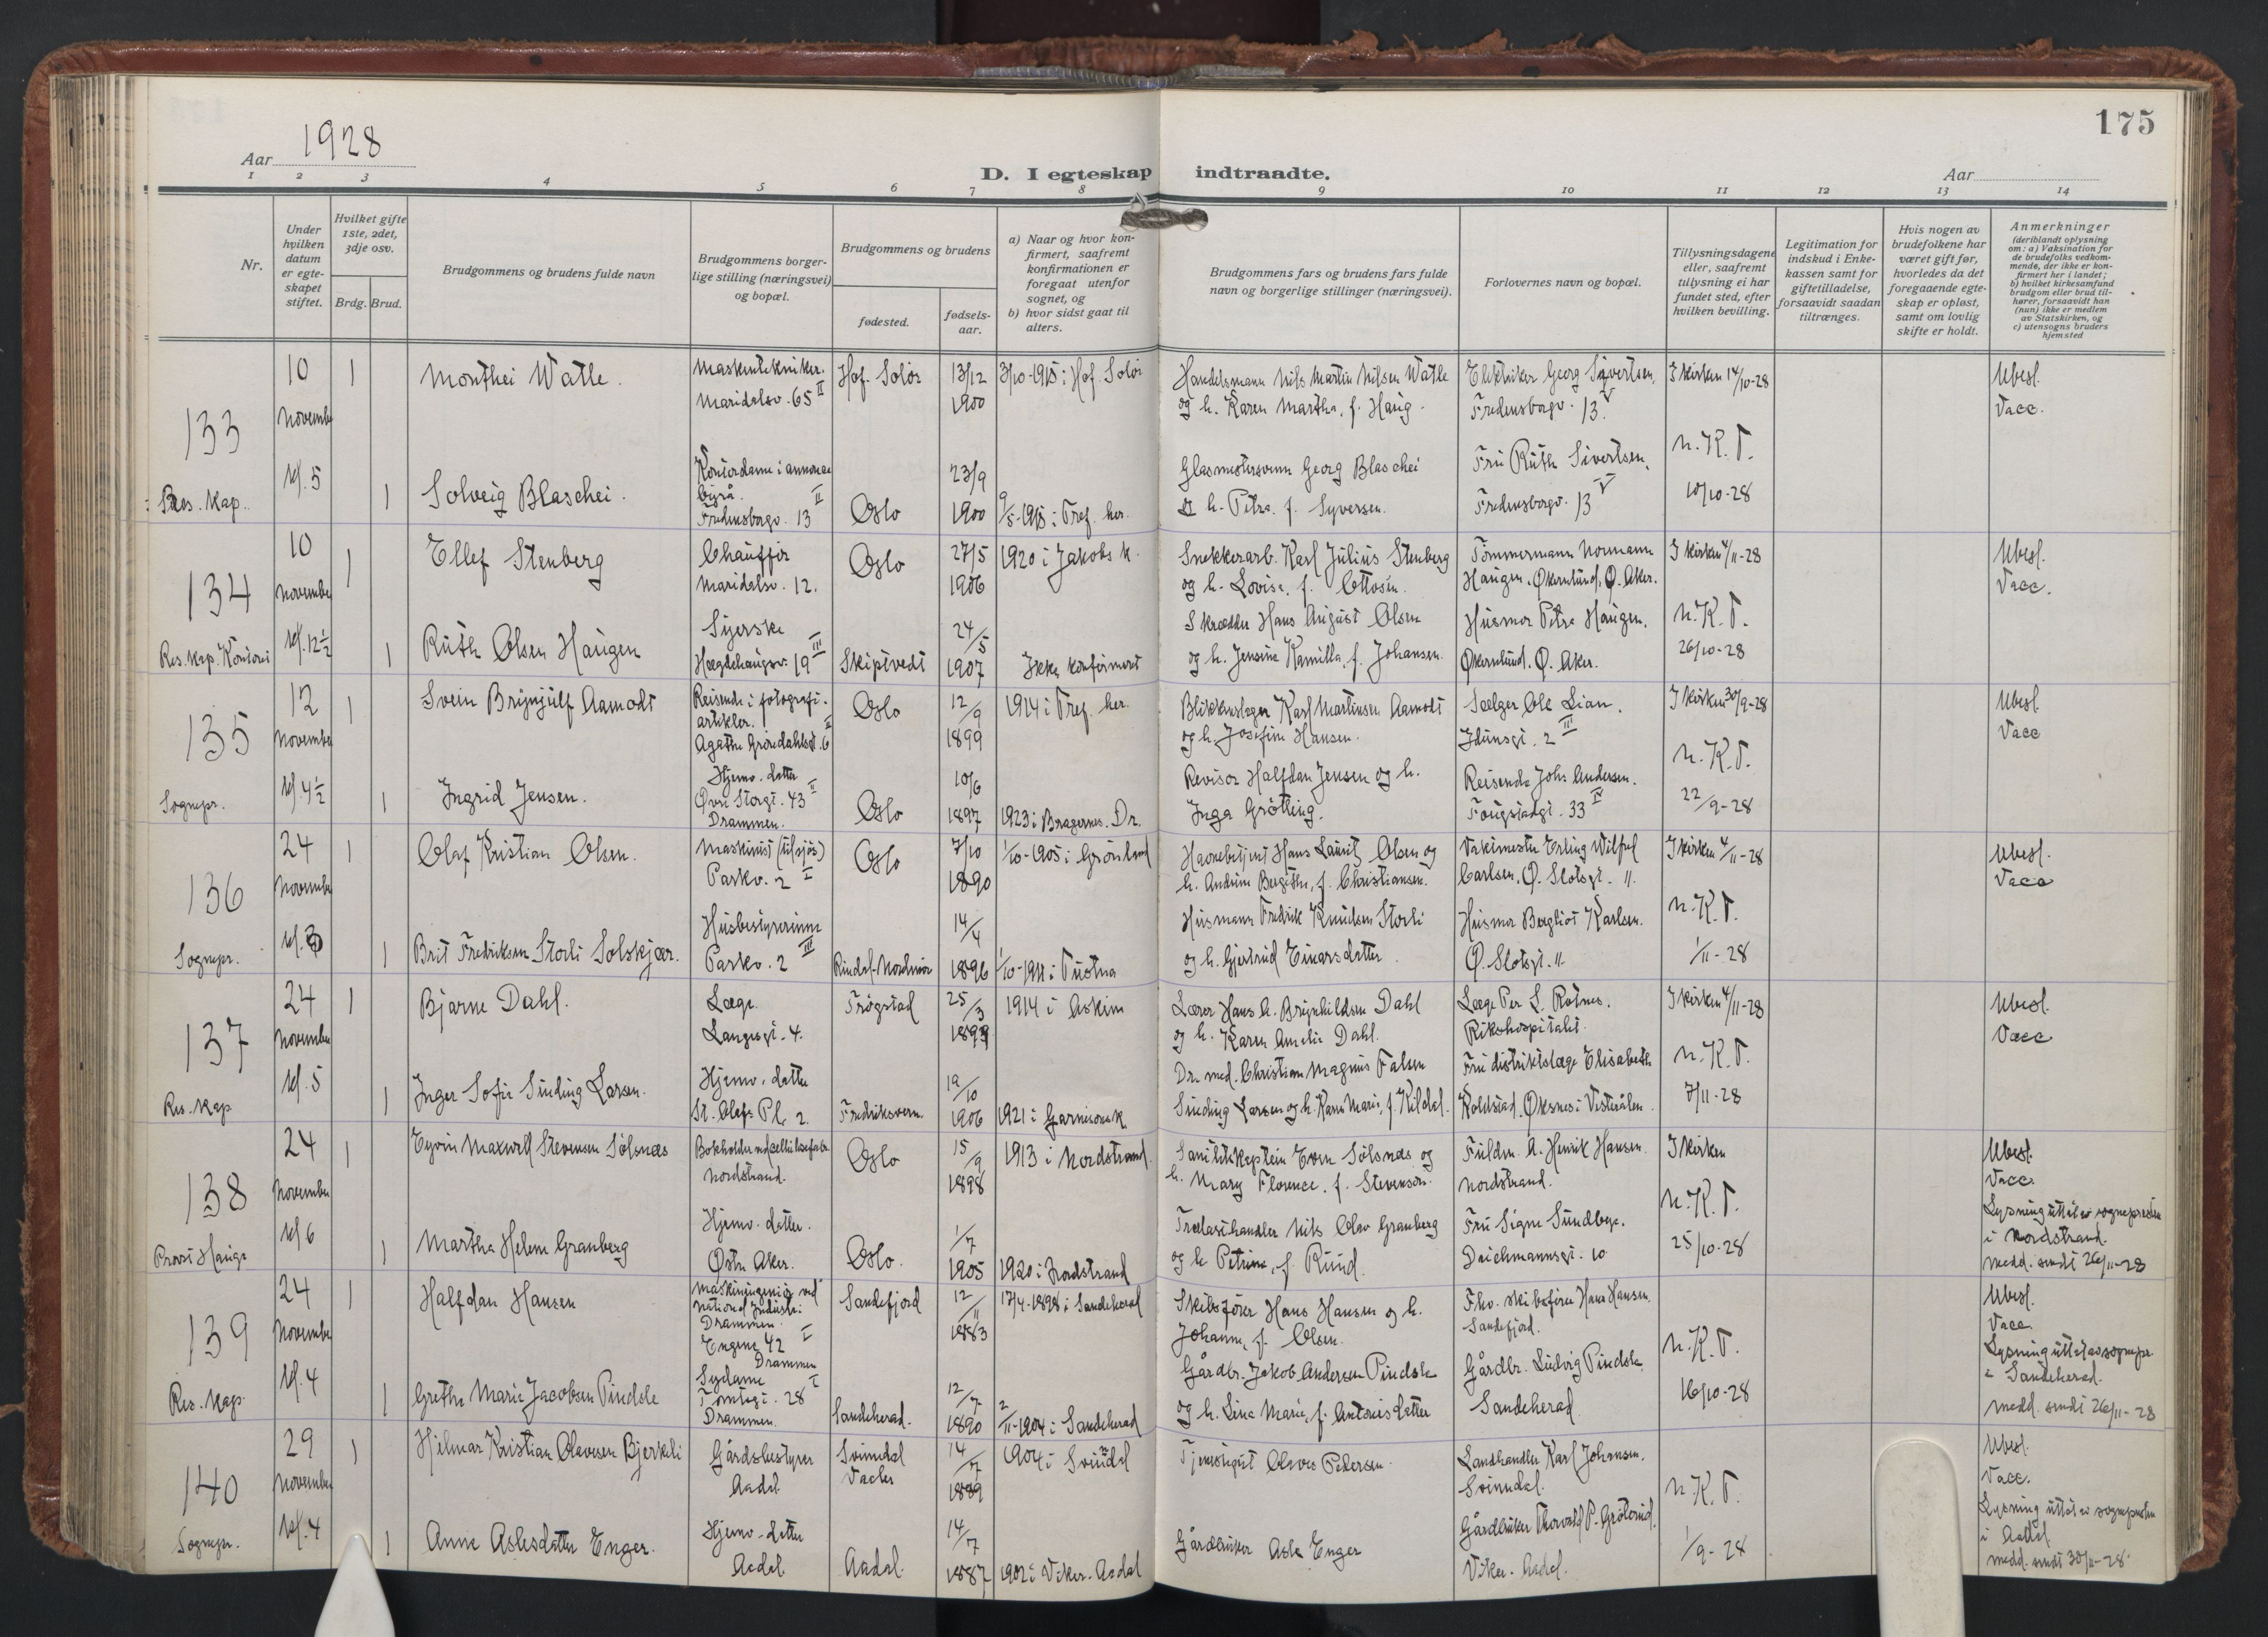 175
Aar 1928
D. I egteskap indtraadte.
Aar
1 2 3 4 5 6 7 8 9 10 11 12 13 14
Nr.
Under hvilken datum er egteskapet stiftet.
Hvilket gifte 1ste, 2det, 3dje osv.
Brdg. Brud.
Brudgommens og brudens fulde navn
Brudgommens borgerlige stilling (næringsvei) og bopæl.
Brudgommens og brudens
fødested.
fødselsaar.
a) Naar og hvor konfirmert, saafremt konfirmationen er foregaat utenfor sognet, og
b) hvor sidst gaat til alters.
Brudgommens fars og brudens fars fulde navn og borgerlige stillinger (næringsvei).
Forlovernes navn og bopæl.
Tillysningsdagene eller, saafremt tillysning ei har fundet sted, efter hvilken bevilling.
Legitimation for indskud i Enkekassen samt for giftetilladelse, forsaavidt saadan tiltrænges.
Hvis nogen av brudefolkene har været gift før, hvorledes da det foregaaende egteskap er opløst, samt om lovlig skifte er holdt.
Anmerkninger
(deriblandt oplysning om: a) Vaksination for de brudefolks vedkommende, der ikke er konfirmert her i landet; b) hvilket kirkesamfund brudgom eller brud tilhører, forsaavidt han (hun) ikke er medlem av Statskirken, og c) utensogns bruders hjemsted
133 10 November kl. 5 Res. kap.
1 Monthei Watle. Maskintekniker. Maridalsv. 65 II Hof. Solør 13/12 1900 3/10-1915 i Hof. Solør
Handelsmann Nils Martin Nilsen Watle og h. Karen Martha, f. Haug.
Elektriker Georg Sivertsen. Fredensborgv. 13 V
I kirken 14/10-28
Ubesl. Vacc.
1 Solveig Blaschei. Kontordame i annonce byrå. Fredensborgv. 13 II Oslo 23/9 1900 9/5-1915 i Tref. her.
Glasmestersvenn Georg Blaschei og h. Petra. f. Syversen.
Fru Ruth Sivertsen. Fredensborgv. 13 V
n. K. T. 10/10-28
134 10 November kl. 12½ Res. kap. Kontoret
1 Ellef Stenberg Chauffør Maridalsv. 12. Oslo 27/5 1906 1920 i Jakobs k.
Snekkerarb. Karl Julius Stenberg og h. Lovise, f. Ottosen.
Tømmermann Normann Haugen. Økernlund, Ø. Aker.
I kirken 4/11-28
Ubesl. Vacc.
1 Ruth Olsen Haugen Syerske Hegdehaugsv. 19 III Skiptvedt 24/5 1907 Ikke konfirmert
Skrædder Hans August Olsen og h. Jensine Kamilla, f. Johansen.
Husmor Petra Haugen. Økernlund. Ø. Aker.
n. K. T. 26/10-28
135 12 November kl. 4½ Sognepr.
1 Svein Brynjulf Aamodt Reisende i fotografiartikler. Agathe Grøndahlsgt. 6 II Oslo 12/9 1899 1914 i Tref. her.
Blikkenslager Karl Martinsen Aamodt og h. Josefine Hansen.
Sælger Ole Lian. Idunsgt. 2 III
I kirken 30/9-28
Ubesl. Vacc
1 Ingrid Jensen. Hjemv. datter Øvre Storgt. 43 II Drammen. Oslo 10/6 1897 1923 i Bragernes. Dr.
Revisor Halfdan Jensen og h. Inga Grøtting.
Reisende Johs Andersen. Fougstadgt. 33 IV
n. K. T. 22/9-28
136 24 November Sognepr.
1 Olaf Kristian Olsen. Maskinist (tilsjøs) Parkv. 2 I Oslo 7/10 1890 1/10-1905 i Grønland
Havnebetjent Hans Lauritz Olsen og h. Andrine Bergithe, f. Christiansen.
Vaktmester Erling Wilfred Carlsen. Ø. Slotsgt. 11.
I kirken 4/11-28
Ubesl. Vacc
1 Brit Fredriksen Storli Solskjær. Husbestyrerinne Parkv. 2 III Rindal. Nordmør 14/4 1896 1/10-1911 i Tustna
Husmann Fredrik Knudsen Storli og h. Gjertrud Einarsdatter
Husmor Bergliot Karlsen. Ø. Slotsgt. 11
n. K. T. 1/11-28
137 24 November kl. 5 Res. kap
1 Bjarne Dahl. Læge. Langesgt. 4. Trøgstad 25/3 1899 1914 i Askim
Lærer Hans A. Brynhildsen Dahl og h. Karen Amelie Dahl.
Læge Per L. Rotnes. Rikshospitalet.
I kirken 4/11-28
Ubesl. Vacc
1 Inger Sofie Sinding Larsen. Hjemv. datter St. Olafs Pl. 2. Fredriksvern 19/10 1906 1921 i Garnisonsk
Dr. med. Christian Magnus Falsen Sinding Larsen og h. Karen Marie, f. Kildal.
Fru distriktslæge Elisabeth Koldstad. Øksnes i Vesterålen.
n. K. T. 7/11-28
138 24 November kl 6 Provst Hauge
1 Eyvin Maxwell Stevenson Sølsnæs Bokholder ved cellulosefabr. Nordstrand. Oslo 15/9 1898 1913 i Nordstrand.
Sanitetskaptein Even Sølsnæs og h. Mary Florence, f. Stevenson.
Fuldm. A. Henrik Hansen. Nordstrand.
I kirken
Ubesl. Vacc.
Lysning uttat av sognepresten i Nordstrand. medd. sendt 26/11-28
1 Martha Helene Granberg Hjemv. datter. Østre Aker. Oslo. 1/7 1905 1920 i Nordstrand
Trælasthandler Nils Olav Granberg og h Petrine, f. Ruud.
Fru Signe Sundbye. Deichmannsgt. 10
n. K. T. 25/10-28
139 24 November kl. 4 Res. kap.
1 Halfdan Hansen Maskiningeniør ved National Industri Drammen. Engene 42 I Drammen Sandefjord 12/11 1883 17/4-1898 i Sandeherad
Skibsfører Hans Hansen og h. Johanne, f. Olsen.
Fhv. skibsfører Hans Hansen. Sandefjord.
Ubesl. Vacc.
Lysning uttat av sognepr. i Sandeherad. medd. sendt 26/11-28
1 Grethe Marie Jacobsen Pindsle Sydame Tomtegt. 28 I Drammen. Sandeherad. 12/7 1890 2/11-1904 i Sandeherad
Gårdbr. Jakob Andersen Pindsle og h. Lina Marie, f. Antonisdatter
Gårdbr. Ludvig Pindsle Sandeherad.
n. K. T. 16/10-28
140 29 November kl. 4 Sognepr.
1 Hilmar Kristian Olavesen Bjerkeli Gårdsbestyrer Aadal. Svinndal Vaaler 14/7 1889 1904 i Svinndal
Tjenestegutt Olaves Pedersen.
Landhandler Karl Johansen. Svinndal.
Ubesl. Vacc.
Lysning uttat av sognepresten i Aadal. medd. sendt 30/11-28.
1 Anne Aslesdatter Enger. Hjemv. datter Aadal. Aadal. 14/7 1887 1902 i Viker. Aadal
Gårdbruker Asle Enger
Gårdbruker Thorvald P. Grøterud. Viker. Aadal.
n. K. T. 1/9-28